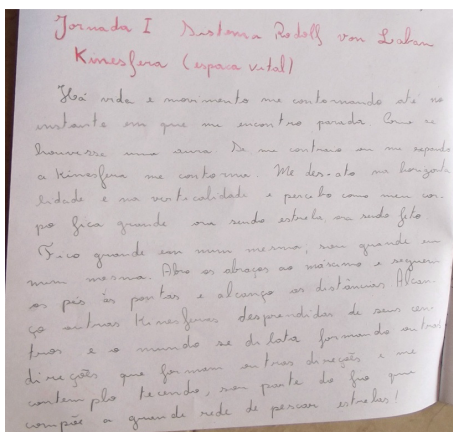 Jornada I Sistema Rodolf von Laban
Kinesfera (espaço vital)
Há vida e movimento me contornando até no
instante em que me encontro parada. Como se
houvesse uma aura. Se me contraio ou me expando
a Kinesfera me contorna. Me des-ato na horizonta
lidade e na verticalidade e percebo como meu cor-
po fica grande ora sendo estrela, ora sendo feto
Fico grande em mim mesma, sou grande em
mim mesma. Abro os abraços ao máximo e seguem
os pés às pontas e alcanço as distâncias. Alcan-
ço outras Kinesferas desprendidas de seus cen-
tros e o mundo se dilata formando outras
direções que formam outras direções e me
contemplo tecendo, sou parte do fio que
compõe a grande rede de pescar estrelas!